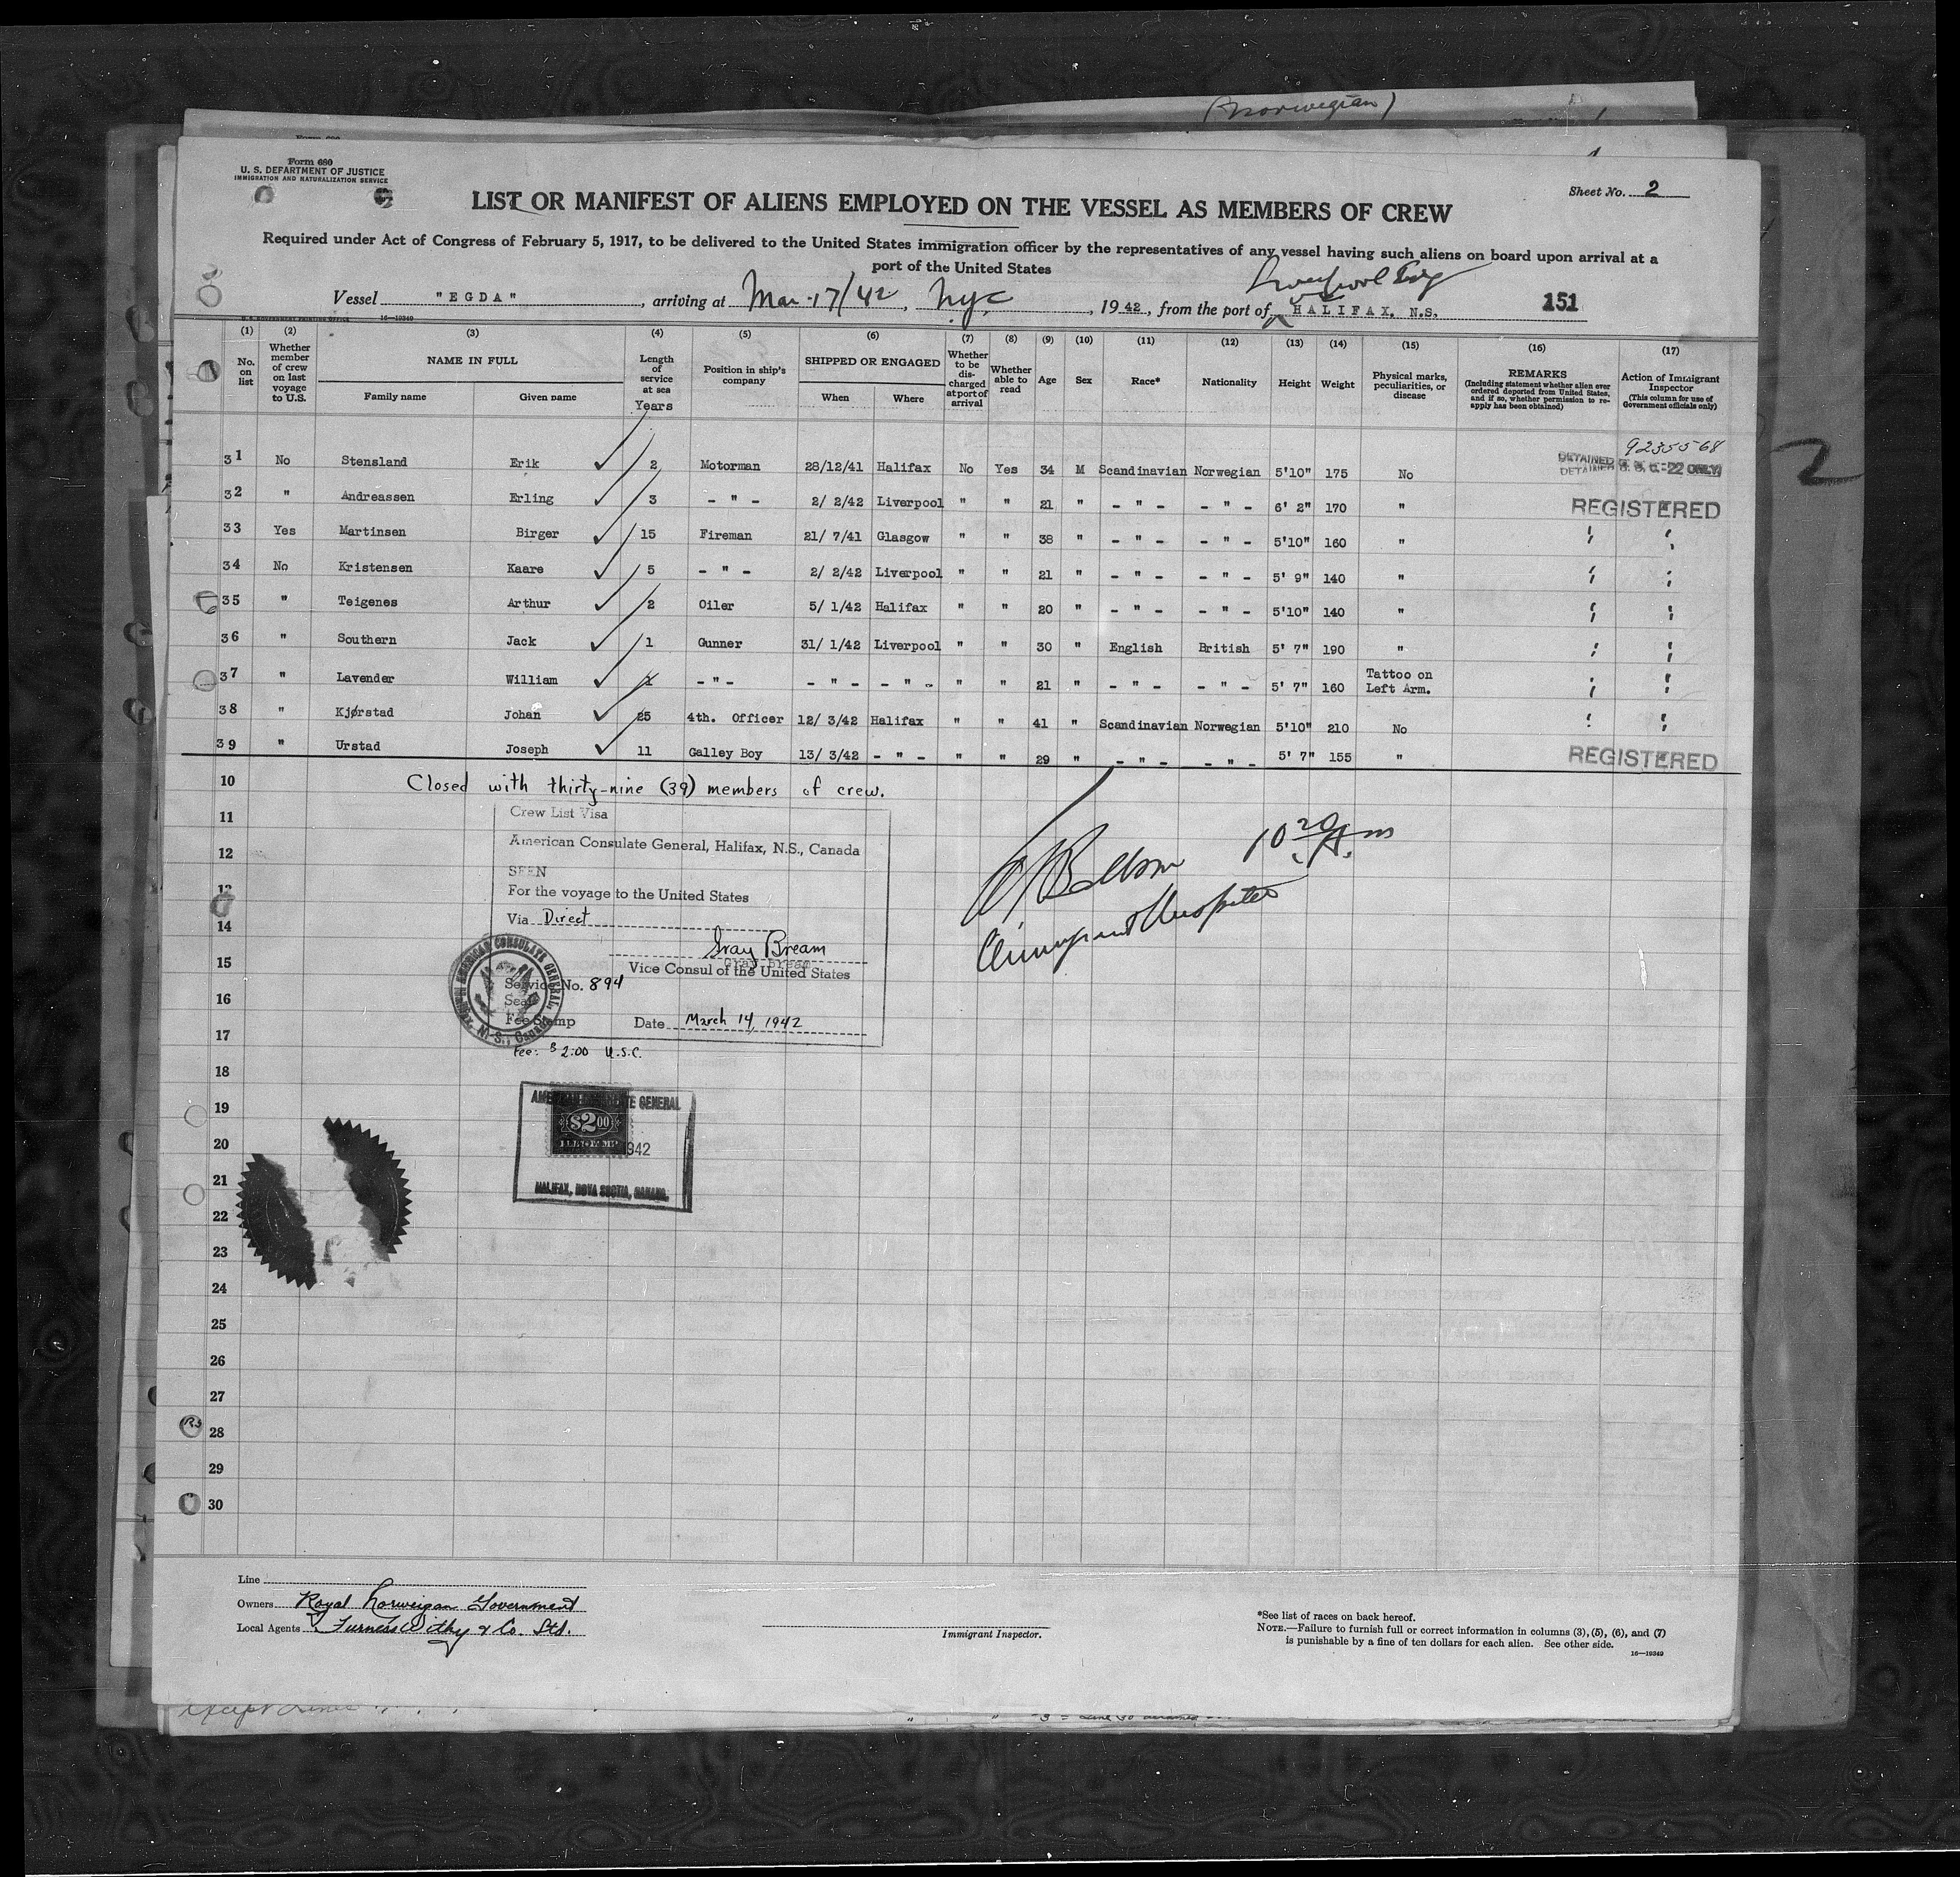 (Norwegian)
Form 680
U. S. DEPARTMENT OF JUSTICE
IMMIGRATION AND NATURALIZATION SERVICE
Sheet No. 2
LIST OR MANIFEST OF ALIENS EMPLOYED ON THE VESSEL AS MEMBERS OF CREW
Required under Act of Congress of February 5, 1917, to be delivered to the United States immigration officer by the representatives of any vessel having such aliens on board upon arrival at a
port of the United States
Liverpool Eng
Vessel "EGDA", arriving at Mar-17/42, NYC, 1942, from the port of HALIFAX, N.S. 151
16—19349
(1) (2) (3) (4) (5) (6) (7) (8) (9) (10) (11) (12) (13) (14) (15) (16) (17)
No. on list
Whether member of crew on last voyage to U.S.
NAME IN FULL
Family name Given name
Length of service at sea
Years
Position in ship's company
SHIPPED OR ENGAGED
When Where
Whether to be discharged at port of arrival
Whether able to read
Age
Sex
Race*
Nationality
Height
Weight
Physical marks, peculiarities, or disease
REMARKS
(Including statement whether alien ever ordered deported from United States, and if so, whether permission to reapply has been obtained)
Action of Immigrant Inspector
(This column for use of Government officials only)
9235568
31 No Stensland Erik ✓ 2 Motorman 28/12/41 Halifax No Yes 34 M Scandinavian Norwegian 5'10" 175 No DETAINED
32 " Andreassen Erling ✓ 3 - " - 2/ 2/42 Liverpool " " 21 " - " - - " - 6' 2" 170 " REGISTERED
33 Yes Martinsen Birger ✓ 15 Fireman 21/ 7/41 Glasgow " " 38 " - " - - " - 5'10" 160 " " "
34 No Kristensen Kaare ✓ 5 - " - 2/ 2/42 Liverpool " " 21 " - " - - " - 5' 9" 140 " " "
35 " Teigenes Arthur ✓ 2 Oiler 5/ 1/42 Halifax " " 20 " - " - - " - 5'10" 140 " " "
36 " Southern Jack ✓ 1 Gunner 31/ 1/42 Liverpool " " 30 " English British 5' 7" 190 " " "
37 " Lavender William ✓ 1 - " - - " - - " - " " 21 " - " - - " - 5' 7" 160 Tattoo on Left Arm. " "
38 " Kjørstad Johan ✓ 25 4th. Officer 12/ 3/42 Halifax " " 41 " Scandinavian Norwegian 5'10" 210 No " "
39 " Urstad Joseph ✓ 11 Galley Boy 13/ 3/42 - " - " " 29 " - " - - " - 5' 7" 155 " REGISTERED
2
10 Closed with thirty-nine (39) members of crew.
11
12
13
14
15
16
17
18
19
20
21
22
23
24
25
26
27
28
29
30
Crew List Visa
American Consulate General, Halifax, N.S., Canada
SEEN
For the voyage to the United States
Via Direct
Gray Bream
Gray Bream
Vice Consul of the United States
Service No. 894
Seal
Fee Stamp
Date March 14, 1942
Fee: $2.00 U.S.C.
AMERICAN CONSULATE GENERAL
HALIFAX, N.S., Canada
10 20 A.m
Immigrant Inspector
AMERICAN CONSULATE GENERAL
$2.00
942
HALIFAX, NOVA SCOTIA, CANADA.
Line
Owners Royal Norweigan Government
Local Agents Furness Withy & Co. Ltd.
Immigrant Inspector.
*See list of races on back hereof.
NOTE.—Failure to furnish full or correct information in columns (3), (5), (6), and (7)
is punishable by a fine of ten dollars for each alien. See other side.
16—19349